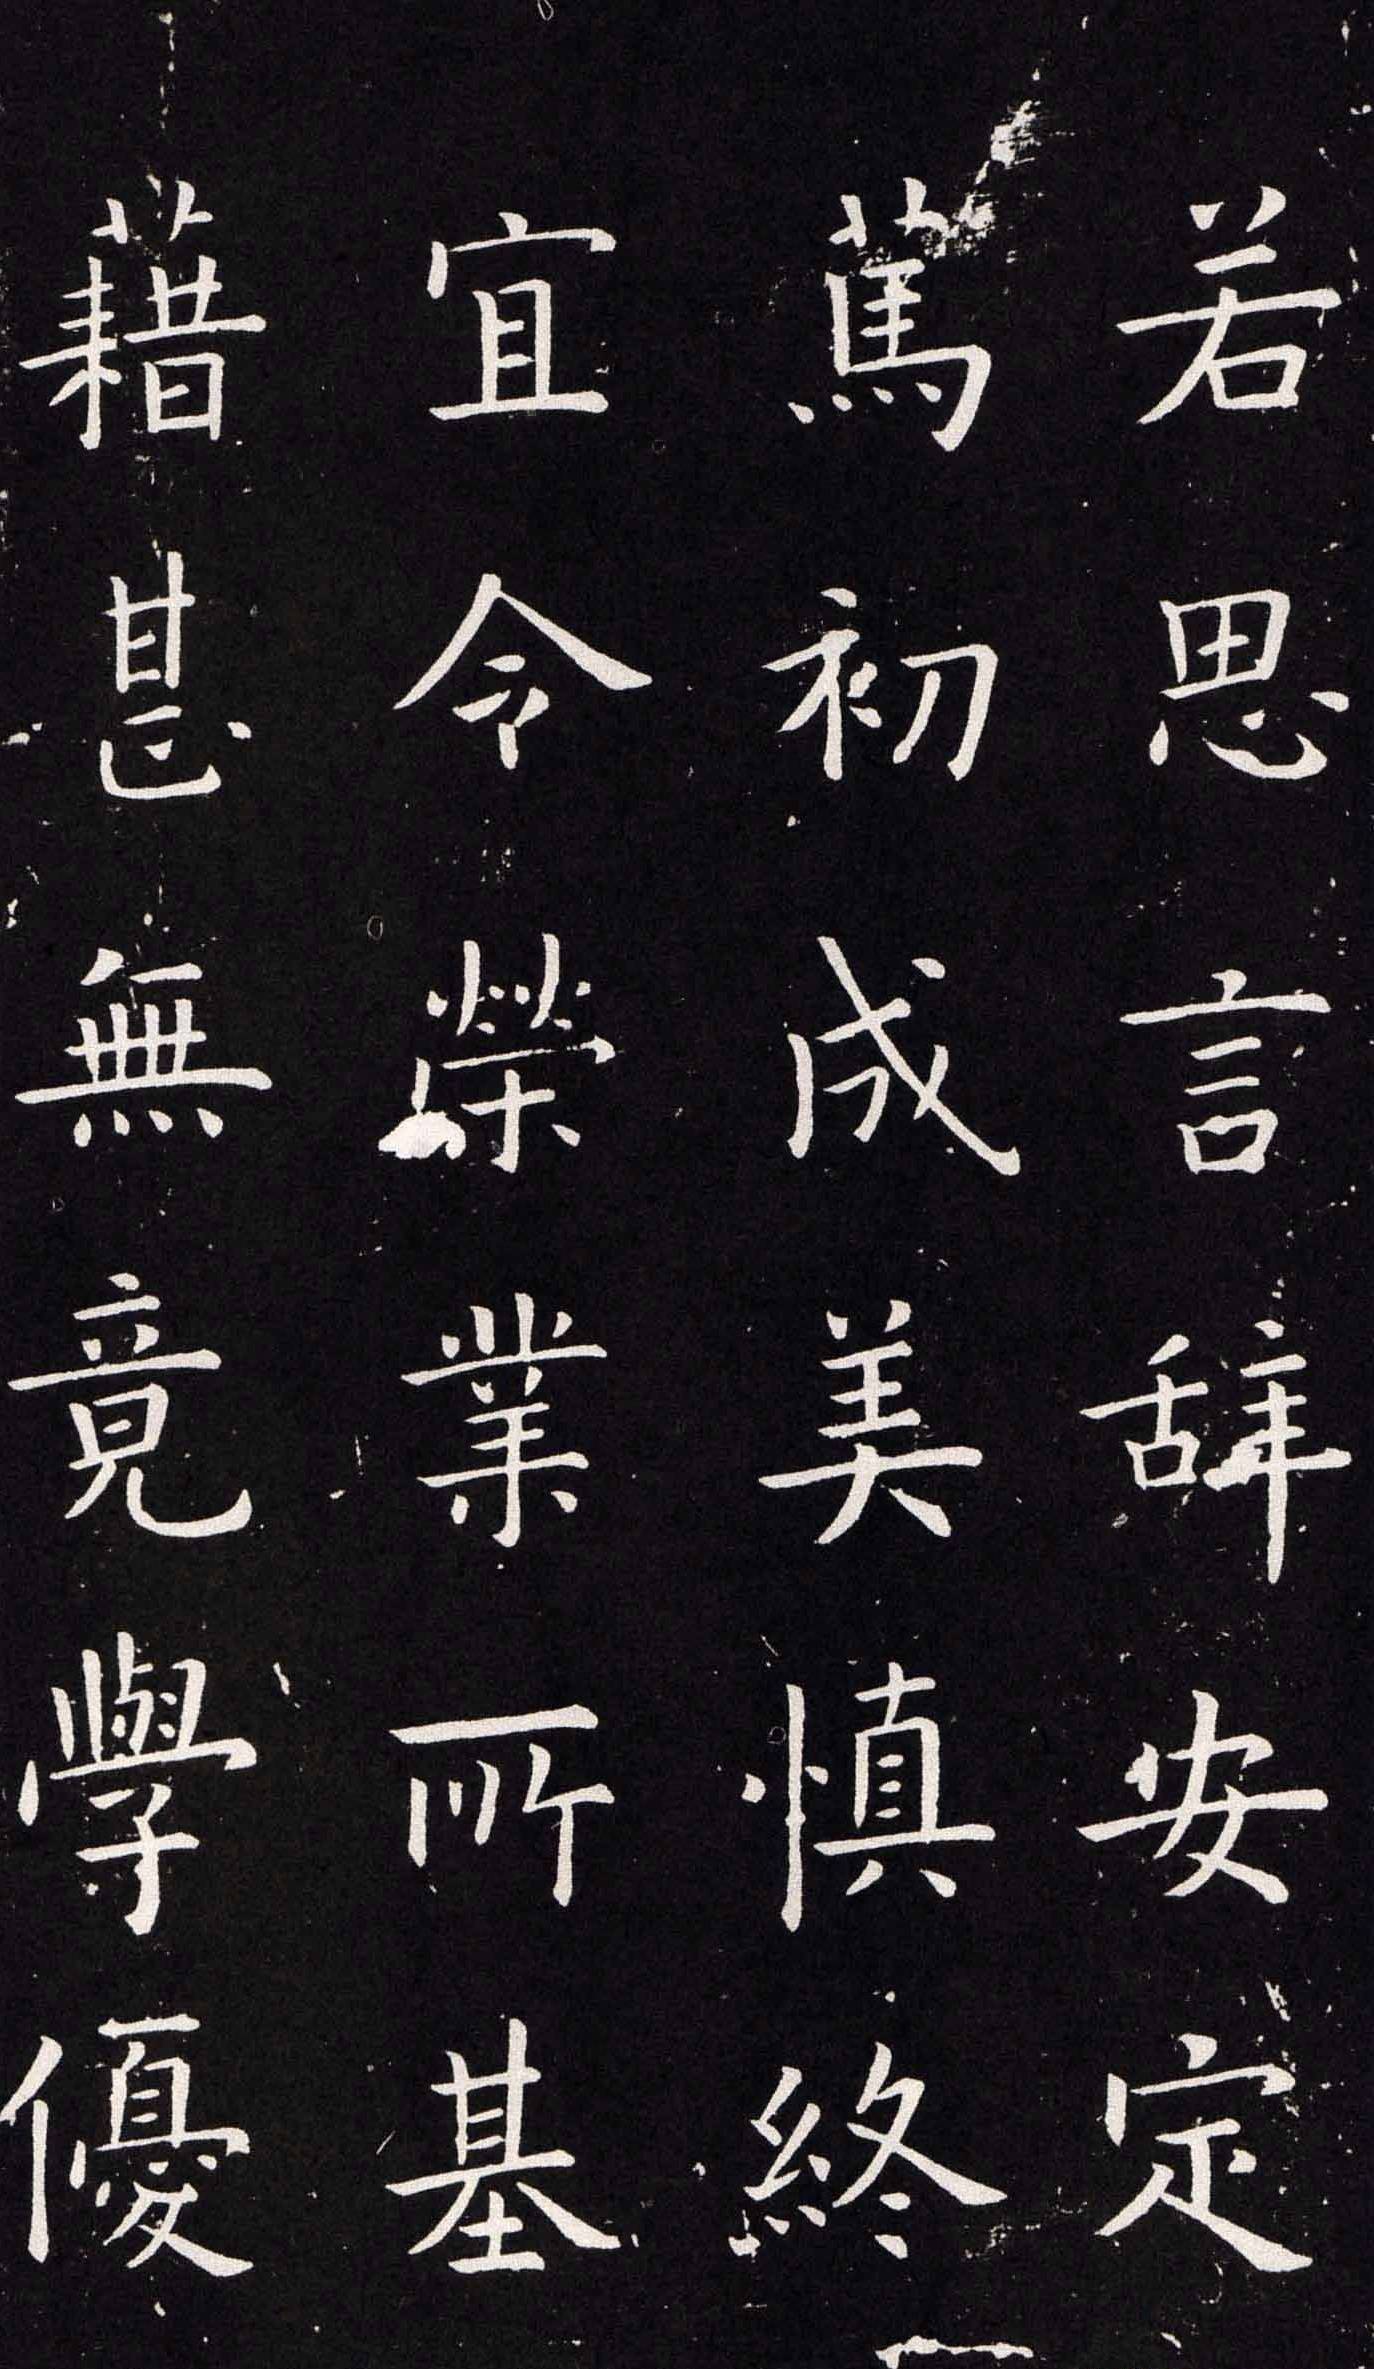 若思言辭安定
篤初成美慎終
宜令榮業所基
藉甚無竟學優